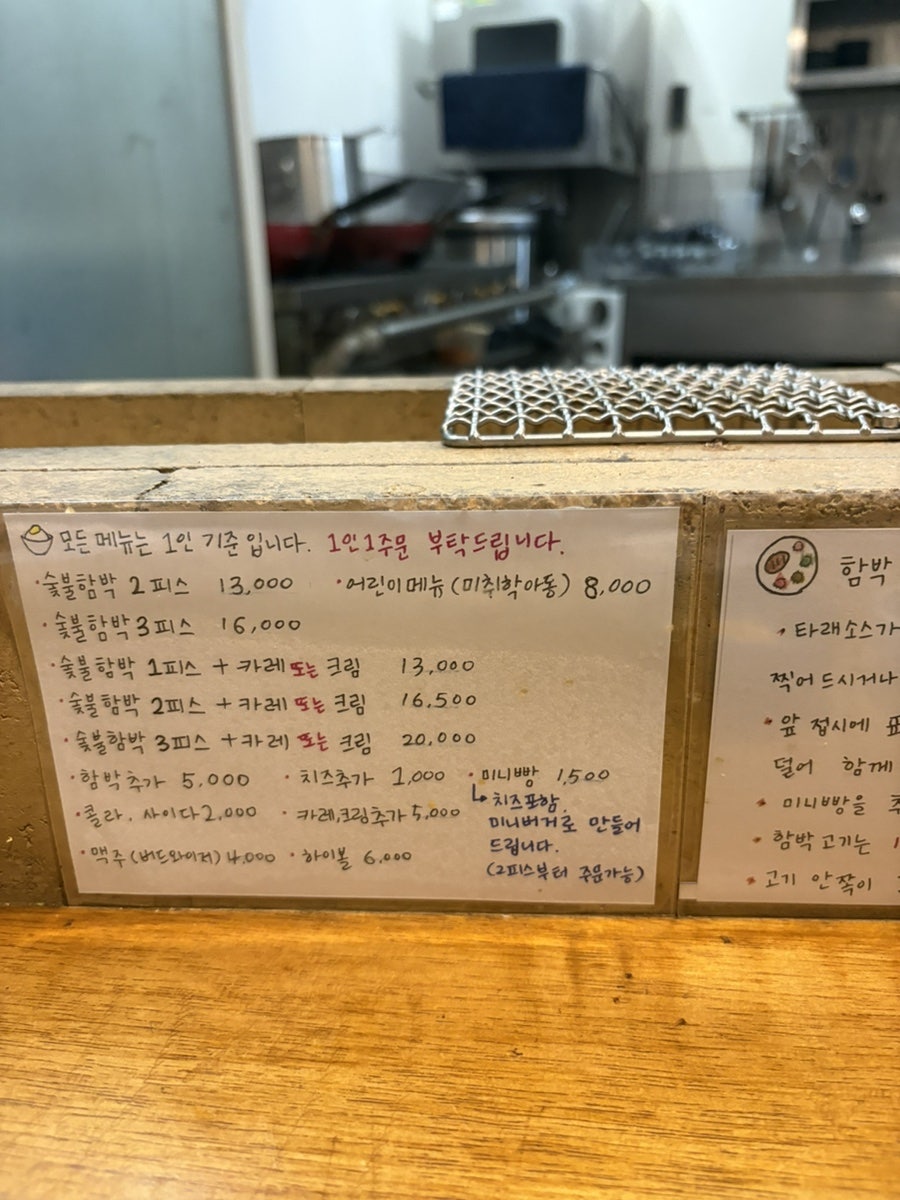 모든 메뉴는 1인 기준 입니다. 1인1주문 부탁드립니다.
·숯불함박 2피스 13,000 ·어린이메뉴(미취학아동) 8,000
·숯불함박 3피스 16,000
·숯불함박 1피스 + 카레 또는 크림 13,000
·숯불함박 2피스 + 카레 또는 크림 16,500
·숯불함박 3피스 + 카레 또는 크림 20,000
·함박추가 5,000 ·치즈추가 1,000 ·미니빵 1,500
↳치즈포함.
·콜라. 사이다 2,000 ·카레,크림추가 5,000
미니버거로 만들어
드립니다.
·맥주(버드와이저) 4,000 ·하이볼 6,000
(2피스부터 주문가능)
함박
·타래소스가
찍어 드시거나
·앞 접시에
덜어 함께
·미니빵을
·함박고기는
·고기 안쪽이